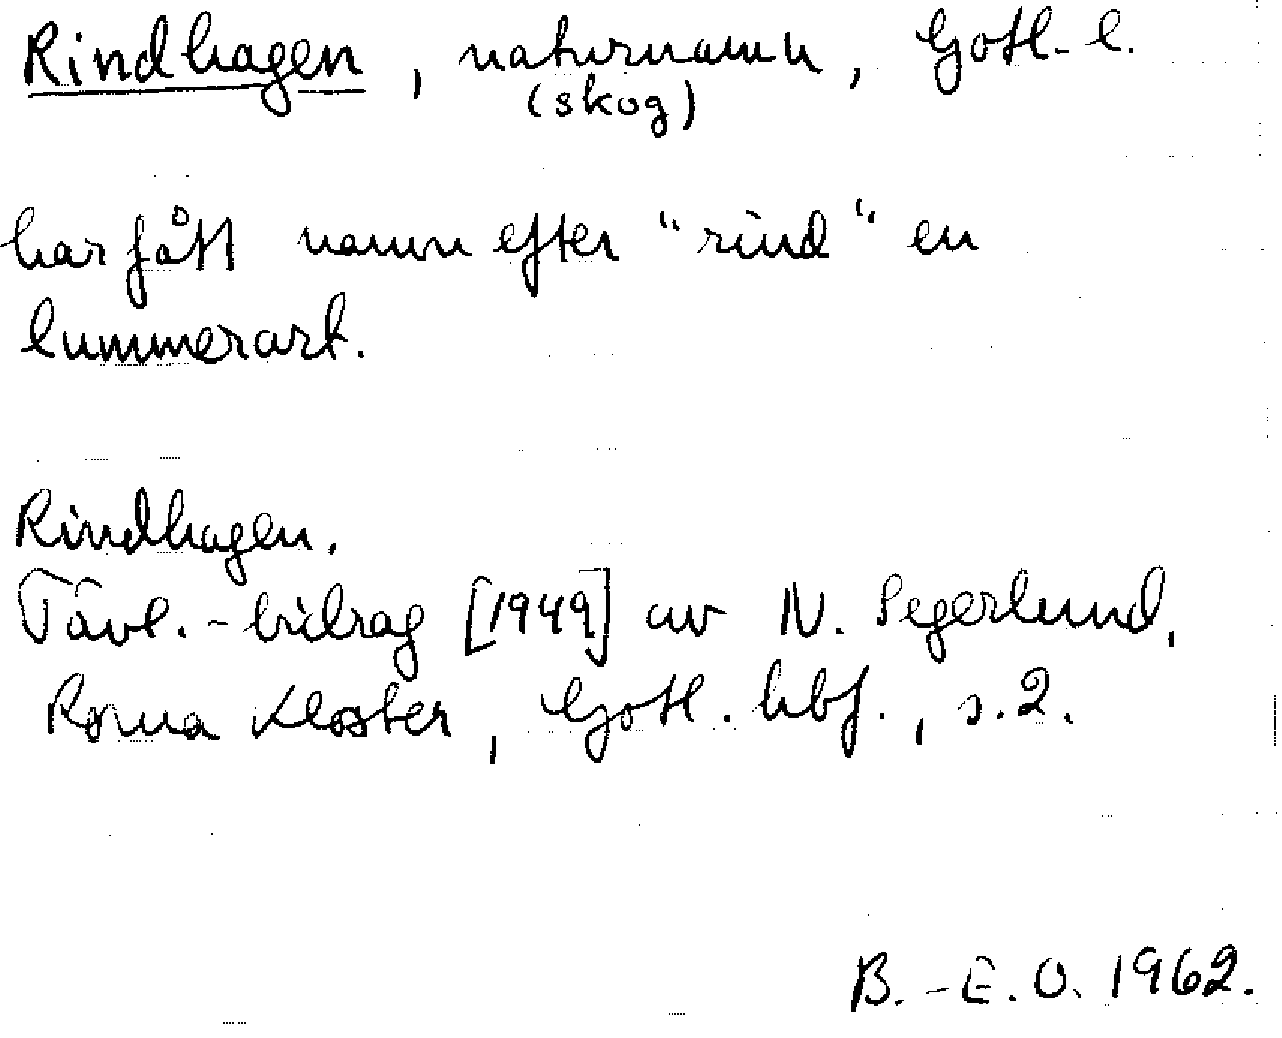 Rindhagen, naturnamn, Gotl. l.
(skog)
har fått namn efter "rind" en
lummerart.
Rindhagen.
Tävl.-bidrag [1949] av N. Segerlund,
Roma Kloster, Gotl. hbf., s. 2.
B.-E. O. 1962.